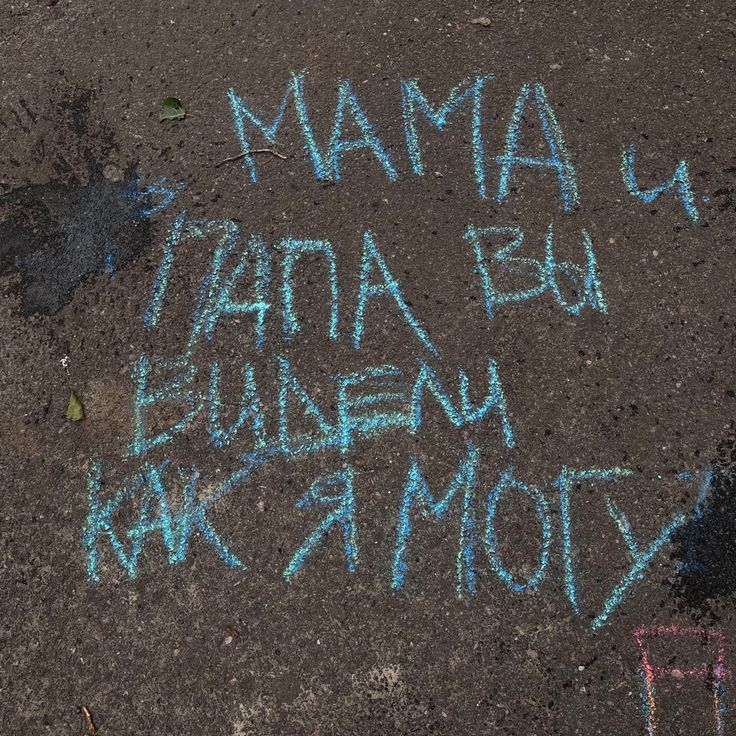 МАМА и
ПАПА ВЫ
ВИДЕЛИ
КАК Я МОГУ
П